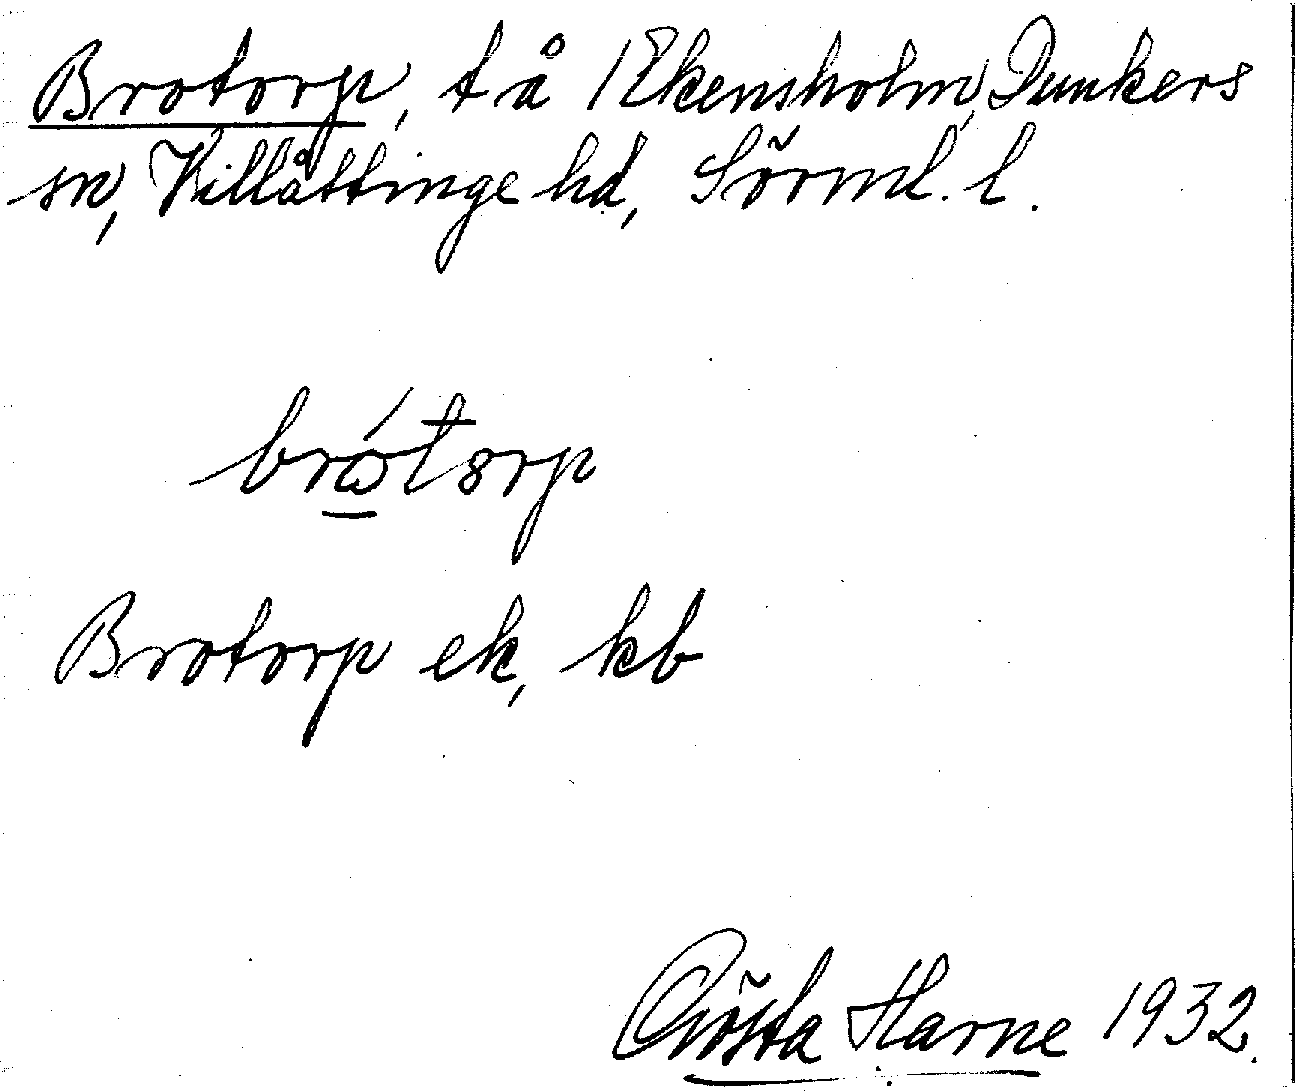 Brotorp, t å Ekensholm, Dunkers
sn, Villåttinge hd, Sörml. l.
brώtorp
Brotorp ek, kb
Gösta Harne 1932.